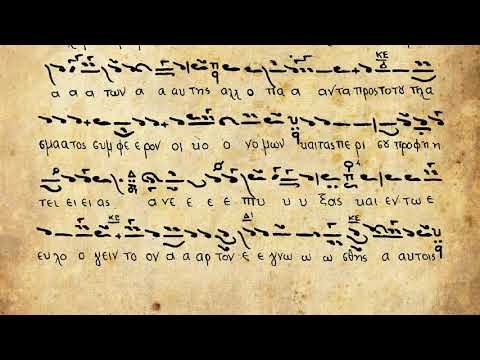 ΚΕ
α α α των α α αυτης αλλ ο πα α αντα προς το του πλα
σμα ατος συμ φε ε ρον οι κο ο νο μων και τας περι σου προφη η
τει ει ει ας α νε ε ε ε πτυ υ υ ξας και εν τω ε
ΚΕ Δι ΚΕ
ευλο ο γειν το ον α α αρτον ε ε γνω ω ω σθης α αυτοις